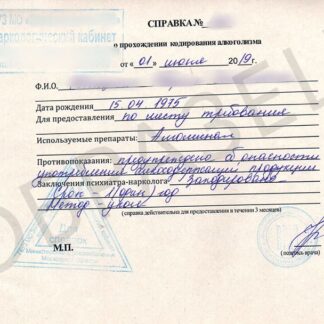 УЗ МО
наркологический кабинет
СПРАВКА №
о прохождении кодирования алкоголизма
от «01» июля 2019г.
Ф.И.О.
Дата рождения 15.04 1975
Для предоставления: по месту требования
Используемые препараты:
Противопоказания: предупреждена об опасности
употребления спиртосодержащей продукции
Заключения психиатра-нарколога: Закодирована
Срок 1(один) год
Метод - укол
(справка действительна для предоставления в течении 3 месяцев)
М.П.
(подпись врача)
ОБРАЗЕЦ